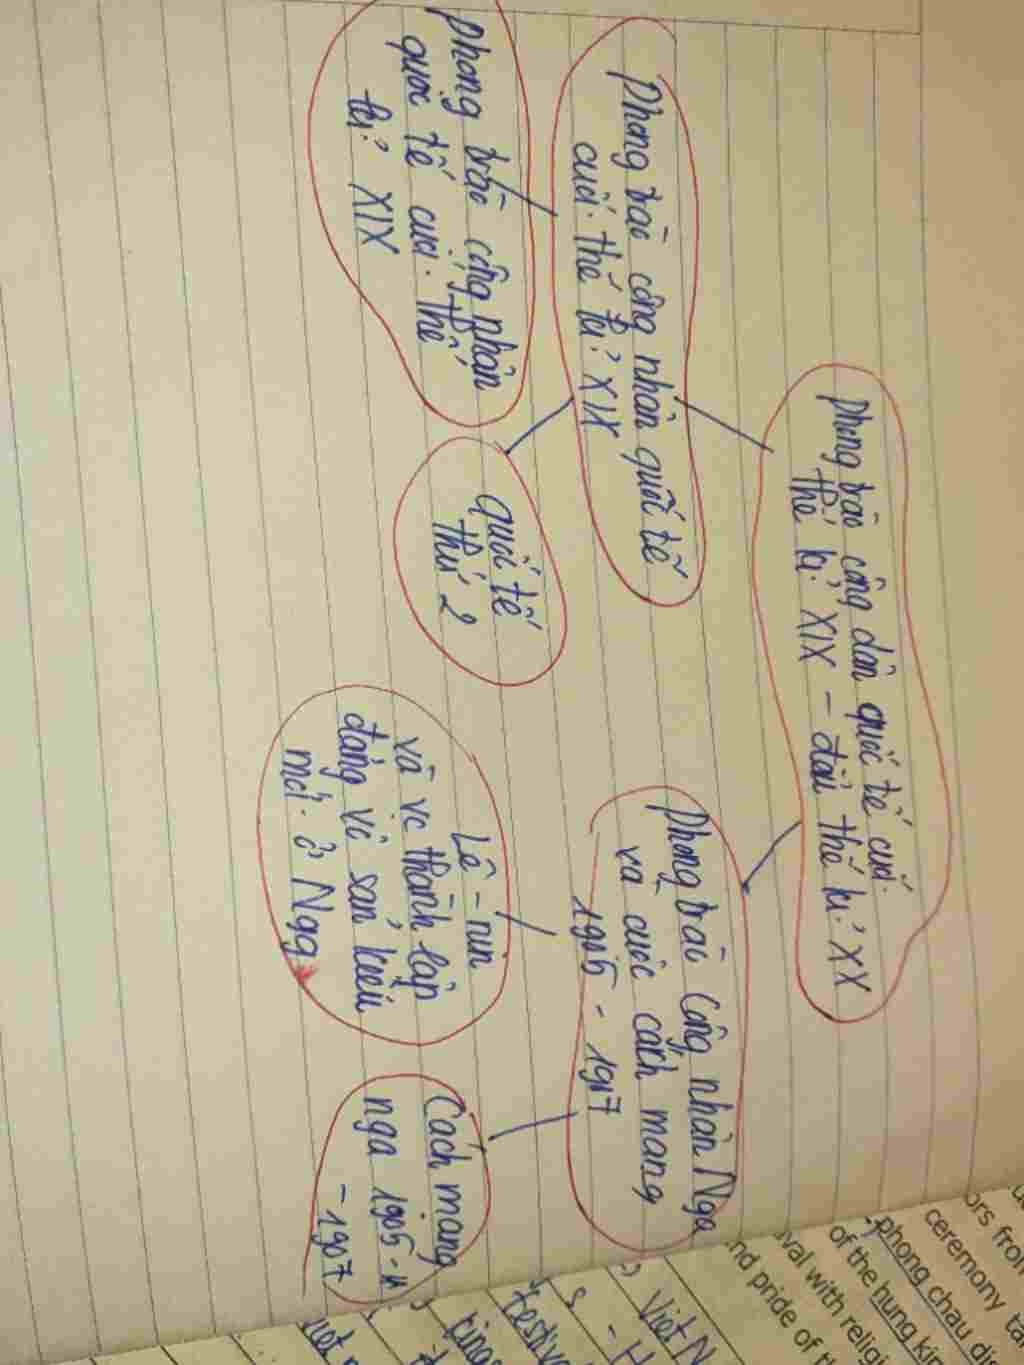 Phong trào công dân quốc tế cuối
thế kỉ XIX - đầu thế kỉ XX
Phong trào công nhân quốc tế
cuối thế kỉ XIX
Phong trào công nhân
quốc tế cuối thế
kỉ XIX
Quốc tế
thứ 2
Phong trào Công nhân Nga
và cuộc cách mạng
1905 - 1907
Lê - nin
và vc thành lập
đảng vô sản kiểu
mới ở Nga
Cách mạng
nga 1905
- 1907
Việt N
- H
festiv
ors from
ceremony ta
phong chau di
of the hung kin
val with religi
nd pride of t